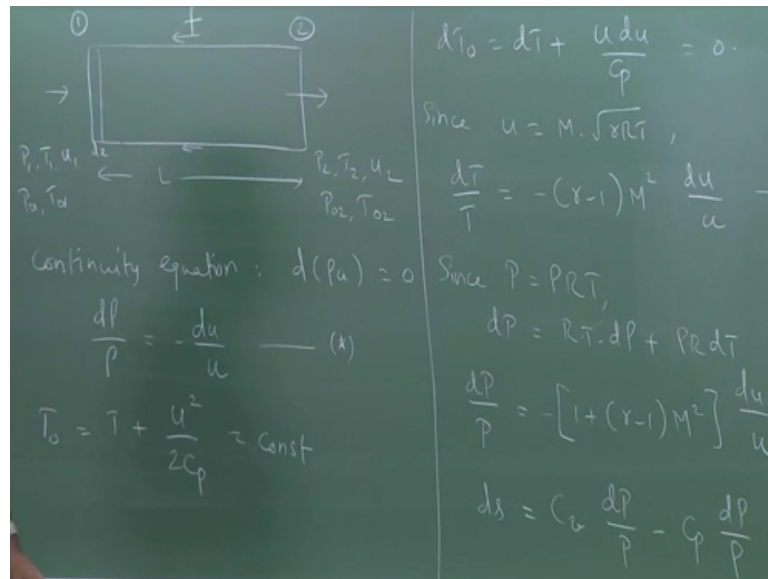 ① f ②
P₁, T₁, u₁ dx P₂, T₂, u₂
P₀₁, T₀₁ L P₀₂, T₀₂
Continuity equation : d(ρu) = 0
dρ/ρ = - du/u —— (*)
T₀ = T + u²/2Cp = Const
dT₀ = dT + u du/Cp = 0.
Since u = M.√γRT,
dT/T = -(γ-1)M² du/u —
Since P = ρRT,
dP = RT.dρ + ρR dT
dP/P = -[1+(γ-1)M²] du/u
ds = Cv dP/P - Cp dρ/ρ